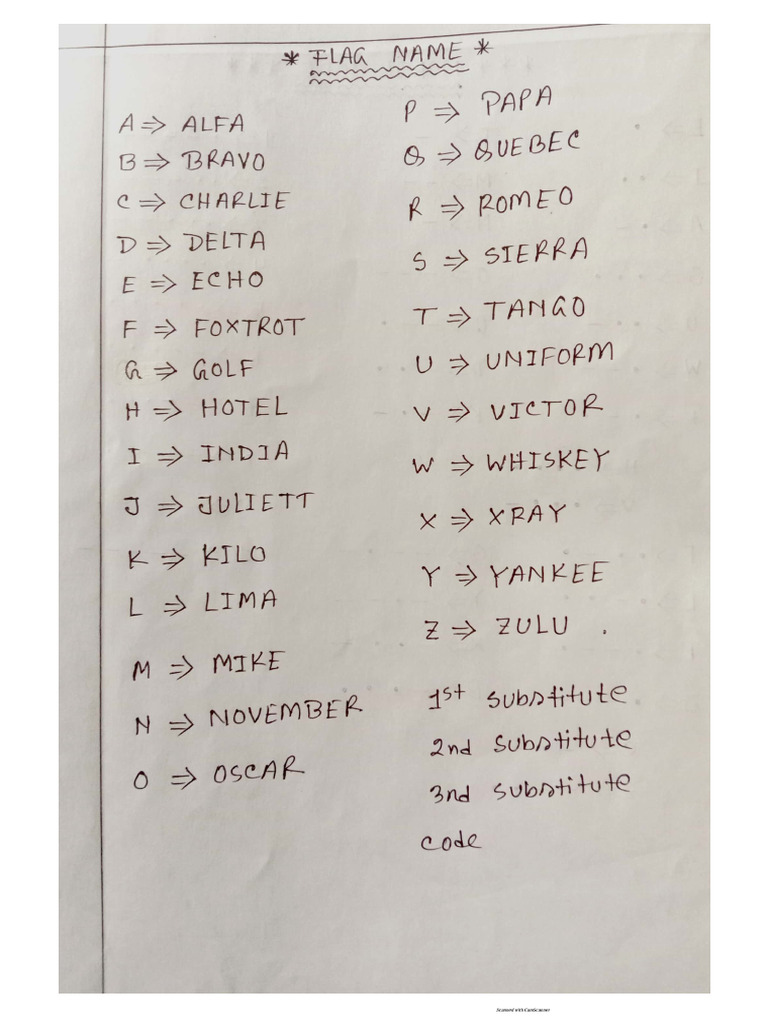 * FLAG NAME *
A ⇒ ALFA
B ⇒ BRAVO
C ⇒ CHARLIE
D ⇒ DELTA
E ⇒ ECHO
F ⇒ FOXTROT
G ⇒ GOLF
H ⇒ HOTEL
I ⇒ INDIA
J ⇒ JULIETT
K ⇒ KILO
L ⇒ LIMA
M ⇒ MIKE
N ⇒ NOVEMBER
O ⇒ OSCAR
P ⇒ PAPA
Q ⇒ QUEBEC
R ⇒ ROMEO
S ⇒ SIERRA
T ⇒ TANGO
U ⇒ UNIFORM
V ⇒ VICTOR
W ⇒ WHISKEY
X ⇒ XRAY
Y ⇒ YANKEE
Z ⇒ ZULU .
1st substitute
2nd substitute
3nd substitute
code
Scanned with CamScanner